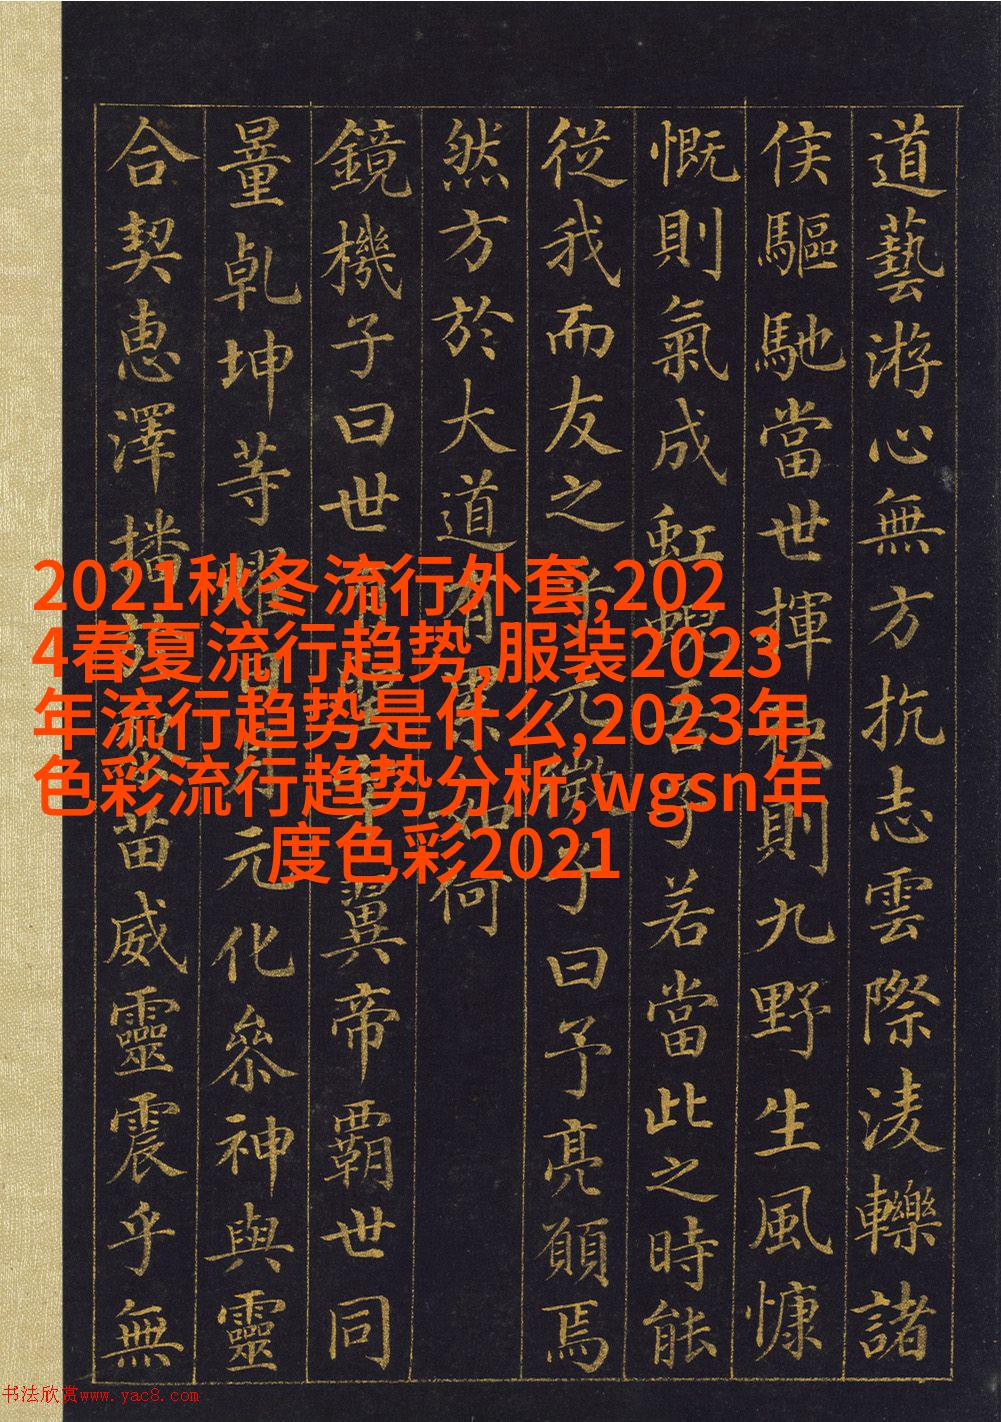 道藝游心無方抗志雲際淩轢諸
侯驅馳當世揮袂則九野生風慷
慨則氣成虹蜺吾子若當此之時能
從我而友之元微子曰予亮願焉
然方於大道有累如何
鏡機子曰世翼帝霸世同
量乾坤等曜元化參神與靈
合契惠澤播苗威靈震乎無
2021秋冬流行外套,202
4春夏流行趋势,服装2023
年流行趋势是什么,2023年
色彩流行趋势分析,wgsn年
度色彩2021
书法欣赏www.yac8.com